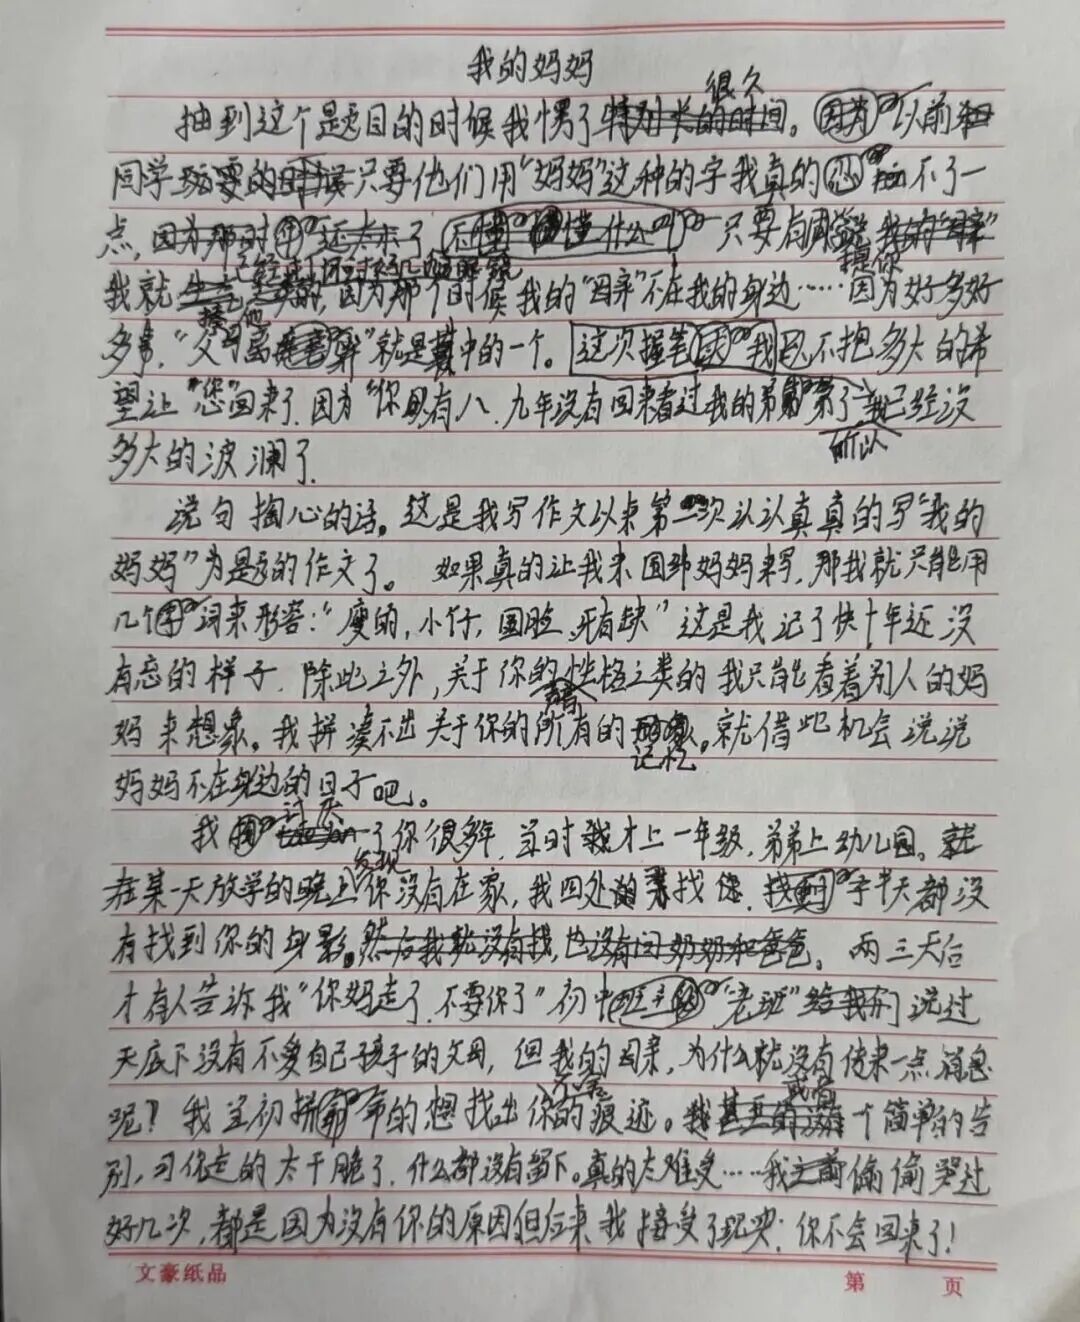 我的妈妈
很久
抽到这个是题目的时候我愣了特别长的时间。因为以前和
同学玩耍的时候只要他们用“妈妈”这种的字我真的忍不了一
点，因为那时还太小了不懂什么叫只要有同学说我的“母亲”
提你
我就生气，因为那个时候我的“母亲”不在我的身边……因为好多好
多事，“父母离异”就是其中的一个。这次握笔我已不抱多大的希
望让“您”回来了，因为“你”只有八、九年没有回来看过我的弟弟了，我已经没
所以
多大的波澜了，
说句掏心的话，这是我写作文以来第一次认认真真的写“我的
妈妈”为是题的作文了。如果真的让我来围绕妈妈来写，那我就只能用
几个词来形容：“瘦的，小仔，圆脸，牙有缺”这是我记了快十年还没
有忘的样子，除此之外，关于你的性格之类的我只能看着别人的妈
声音
妈来想象。我拼凑不出关于你的所有的，就借此机会说说
记忆
妈妈不在身边的日子吧。
讨厌
我了你很多年，当时我才上一年级，弟弟上幼儿园。就
发现
在某一天放学的晚上你没有在家，我四处的寻找你，找了半天都没
有找到你的身影。然后我就没有找，也没有问奶奶和爸爸。两三天后
才有人告诉我“你妈走了，不要你了”初中班主任“老班”给我们说过
天底下没有不爱自己孩子的父母，但我的母亲，为什么就没有传来一点消息
或者
呢？我当初拼命的想找出你的痕迹。我甚至的没有个简单的告
别，可你走的太干脆了，什么都没有留下。真的太难受……我之前偷偷哭过
好几次，都是因为没有你的原因但后来我接受了现实：你不会回来了！
文豪纸品
第 页